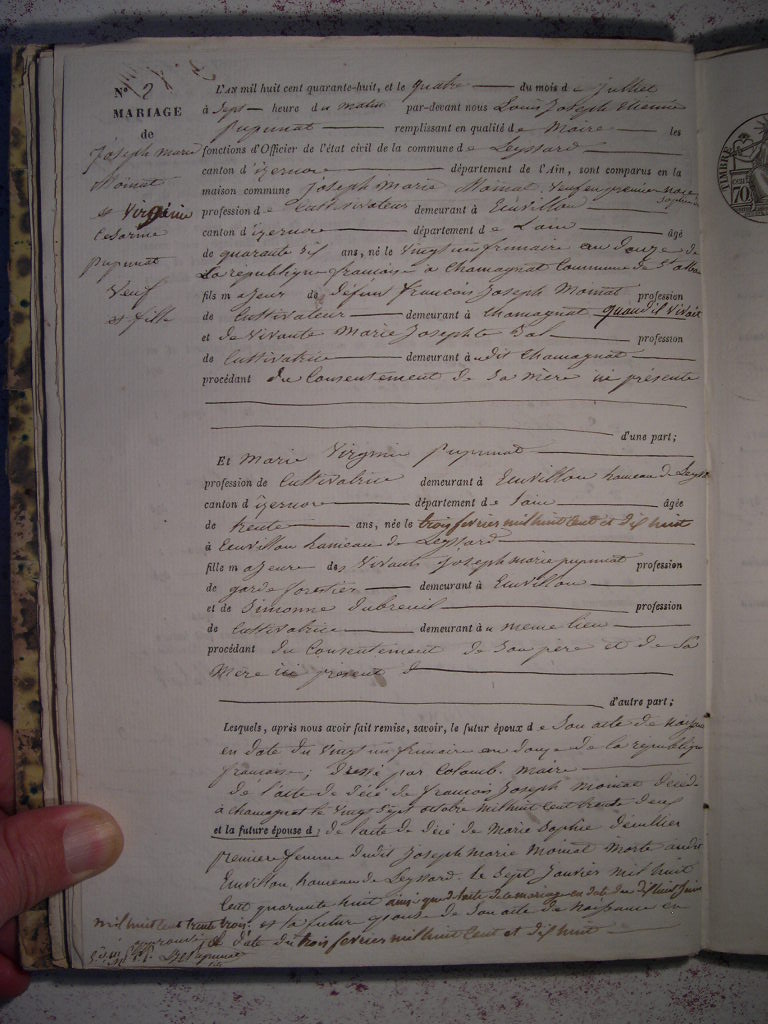 N° 2
MARIAGE
de
Joseph marie
Moinat
et Virginie
Cesarine
pupunat
Veuf
et fille
L'AN mil huit cent quarante-huit, et le quatre du mois de Juillet
à Sept heure du matin par-devant nous Louis Joseph Etienne
pupunat remplissant en qualité de Maire les
fonctions d'Officier de l'état civil de la commune de Leyssard
canton d'izernore département de l'Ain, sont comparus en la
maison commune Joseph Marie Moinat, Veuf en premier noce
profession de Cultivateur demeurant à Euvillou
canton d'izernore département de Lain âgé
de quarante six ans, né le Vingt un frimaire an douze de
La republique francaise à Chamagnat Commune de St alban
fils majeur de défunt francois Joseph Moinat profession
de Cultivateur demeurant à Chamagnat quand il vivait
et de Vivante Marie Josephte profession
de Cultivatrice demeurant à udit Chamagnat
procédant du Consentement de Sa mère ici présente
d'une part;
Et Marie Virginie pupunat
profession de Cultivatrice demeurant à Euvillou hameau de Leyss
canton d'izernore département de Lain âgée
de trente ans, née le trois fevrier mil huit Cent et dix huit
à Euvillou hameau de Leyssard
fille majeure des Vivants Joseph marie pupunat profession
de garde forestier demeurant à Euvillou
et de Simonne Dubreuil profession
de Cultivatrice demeurant à u meme lieu
procédant du Consentement de Son père et de Sa
Mère ici présent
d'autre part;
Lesquels, après nous avoir fait remise, savoir, le futur époux de Son acte de naissance
en date du Vingt un frimaire an douze de la republique
francaise; Dressé par Colomb. maire
de l'acte de décé de francois Joseph Moinat décédé
à chamagnat le Vingt Sept octobre mil huit Cent trente deux
et la future épouse d: de l'acte de décé de Marie Sophie
premiere femme dudit Joseph Marie Moinat Morte audit
Euvillou, hameau de Leyssard le Sept Janvier mil huit
Cent quarante huit ainsi que de l'acte de la mariage en date du dix huit Juin
mil huit Cent trente trois. et la future épouse de Son acte de Naissance en
date du trois fevrier mil huit Cent et dix huit
pupunat
TIMBRE
70